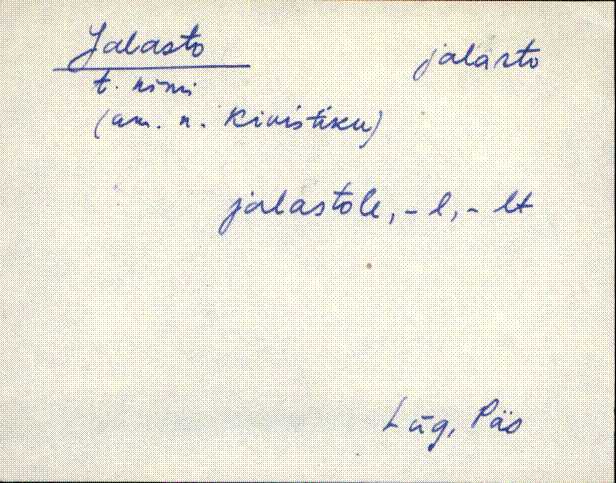 Jalasto jalasto
t. nimi
(am. n. Kivistiku)
jalastole, -l, -lt
Lüg, Päs